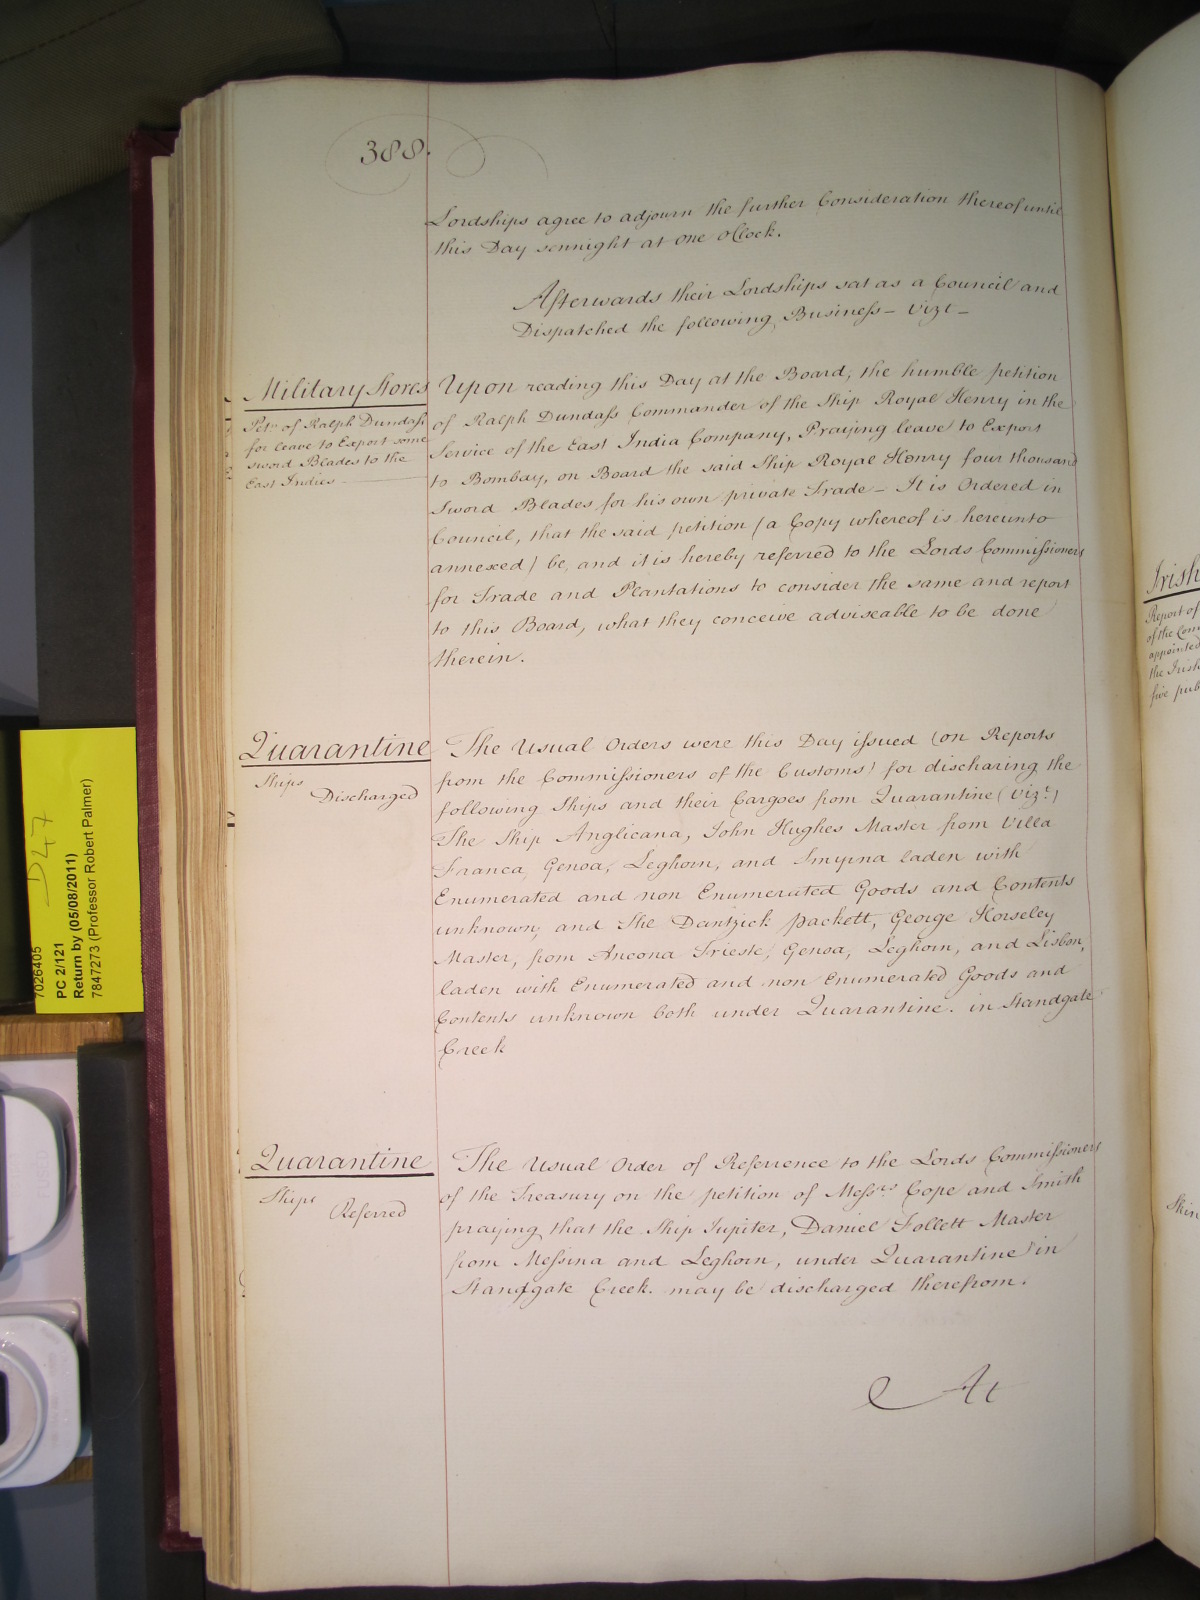 388.
Lordships agree to adjourn the further Consideration thereof until
this Day sennight at one oClock.
Afterwards their Lordships sat as a Council and
Dispatched the following Business - Vizt -
Military Stores
Petn. of Ralph Dundass
for leave to Export some
sword Blades to the
East Indies
Upon reading this Day at the Board, the humble petition
of Ralph Dundass Commander of the Ship Royal Henry in the
Service of the East India Company, Praying leave to Export
to Bombay, on Board the said Ship Royal Henry four thousand
Sword Blades for his own private Trade - It is Ordered in
Council, that the said petition (a Copy whereof is hereunto
annexed) be, and it is hereby referred to the Lords Commissioners
for Trade and Plantations to consider the same and report
to this Board, what they conceive adviseable to be done
therein.
Quarantine
Ships
Discharged
The Usual Orders were this Day issued (on Reports
from the Commissioners of the Customs) for discharging the
following Ships and their Cargoes from Quarantine (Vizt.)
The Ship Anglicana, John Hughes Master from Villa
Franca, Genoa, Leghorn, and Smyrna laden with
Enumerated and non Enumerated Goods and Contents
unknown, and The Dantzick packett, George Horseley
Master, from Ancona Trieste, Genoa, Leghorn, and Lisbon,
laden with Enumerated and non Enumerated Goods and
Contents unknown both under Quarantine. in Standgate
Creek
Quarantine
Ships
Referred
The Usual Order of Reference to the Lords Commissioners
of the Treasury on the petition of Messrs. Cope and Smith
praying that the Ship Jupiter, Daniel Follett Master
from Messina and Leghorn, under Quarantine in
Standgate Creek. may be discharged therefrom.
At
D47
7026405
PC 2/121
Return by (05/08/2011)
7847273 (Professor Robert Palmer)
Irish
Report of
of the Com
appointed
the Irish
five pub
Skin